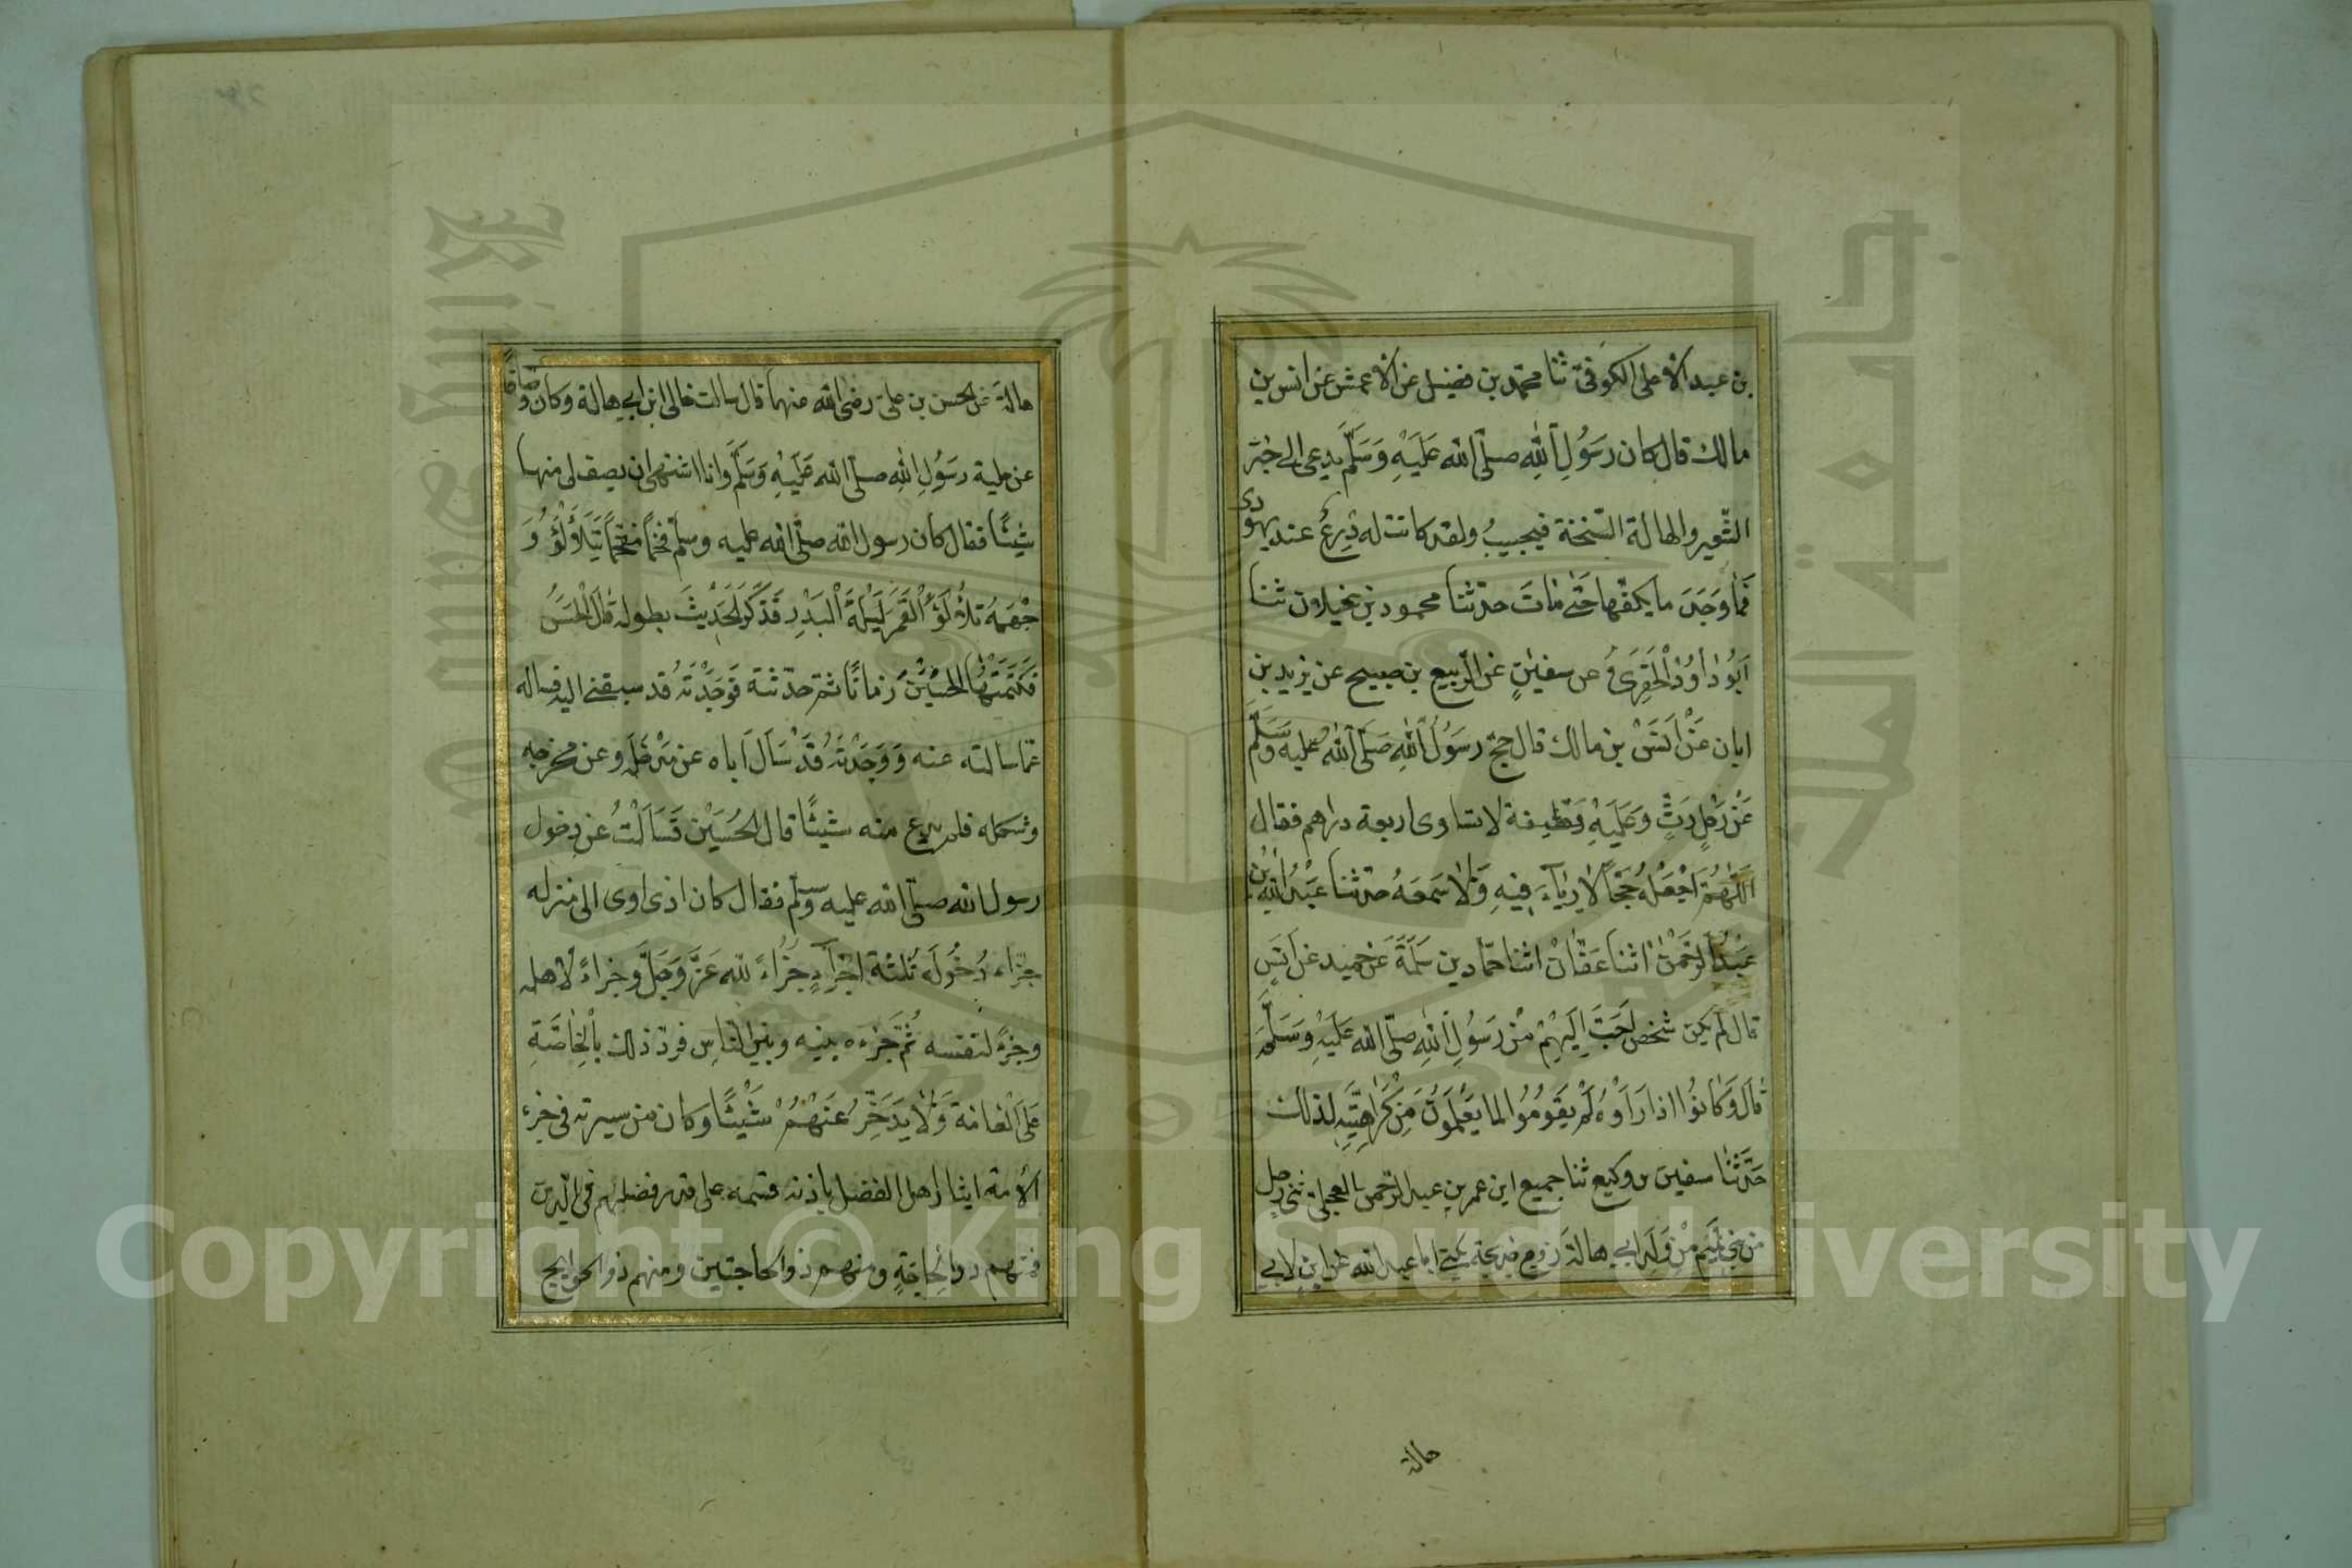 بن عبد الأعلى الكوفىّ ثنا محمّد بن فضيل عن الأعمش عن انس بن
مالك قال كان رَسُولِ اللهِ صلّى الله عَلَيْهِ وَسَلَّم يدعى الى خبز
الشّعير والهالة السّنخة فيجيبُ ولقد كانت له دِرعٌ عند يهودى
فَمَا وَجَدَ ما يكفّها حَتّٰى مَاتَ حدّثنا محمود بن غيلان ثنا
اَبُو دٰاوُد الْحَفَرِىُّ عن سفيٰن عن الرّبيع بن صبيح عن يزيد بن
ابان عَنْ اَنَسْ بن مالك قال حجّ رسَوُلُ اللهِ صَلّى اللهُ عليه وسَلَّمَ
عَنْ رَحْلٍ رَثٍّ وَعَلَيْهِ قَطِيفة لا تساوى اربعة دراهم فقال
اَللّٰهُمَّ اجْعَلْهُ حَجّاً لاٰ رِيٰآءَ فِيْهِ وَلاٰ سَمعَهُ حدّثنا عَبْدُ اللهِ بْن
عَبْدُ الرَّحْمٰن اثنا عَفّانْ اثنا حمّاد بن سَلَمَةَ عَن حُميد عن اَنَسٍ
قال لَم يكن شخص اَحَبَّ اِلَيْهِمْ مْن رَسَوُلِ اللهِ صلّى الله عَلَيْهِ وَسَلَّمَ
قٰالَ وَكٰانُوُا اذا رَاَوْهُ لَمْ يَقُومُوُا لما يَعْلَموُنَ مِنْ كَرٰاهِيَّتِهِ لذلك
حَدّثَنٰا سفيٰن بن وكيع ثنا جميع ابن عمر بن عبد الرّحمن العجلىّ ثنى رجل
من بنى تميم مِنْ وَلَدِ ابى هالة زوج خديجة يكنى ابا عبد الله عن ابنٍ لابى
هالة
هالة عن الحسن بن علىّ رضى الله عنهما قال سالت خالى ابن ابى هالة وكان وصّافاً
عن حلية رسَوُلِ اللهِ صلّى الله عَلَيْهِ وَسَلَّم وانا اشتهى ان يصف لى منها
شيئًا فقال كان رسول الله صلّى الله عليه وسلّم فخماً مفخّماً يَتَلَاْلَؤُ وَ
جْهَهُ تلأْلُؤَ الْقَمَرِ لَيْلَةَ الْبَدْرِ فَذَكَرَ الحَدِيْثَ بطوله قٰالَ الْحَسَنُ
فَكَتَمْتُهٰا الْحُسَيْنَ زمانًا ثم حدّثته فَوَجَدْتُهُ قد سبقنى اليه فساله
عمّا سالته عنه وَوَجَدْتُهُ قَدْ سَاَلَ اَباه عن مَدْخَلِهِ وعن مخرجه
وشكله فلم يدع منه شيئًا قال الحُسَيْن فَسَاَلْتُ عن دخول
رسول الله صلّى الله عليه وسلّم فقال كان اذى اوى الى منزله
جزّاء دُخُولَه ثلثة اجزآءٍ جزْاءً للّه عَزَّ وَجَلَّ وجزاءً لاهله
وجزءً لنفسه ثُمَّ جَزءَه بينه وبين النّاسِ فردّ ذلك بالْخٰاصَّةِ
عَلَى الْعٰامّة وَلاٰ يَدَّخِّرُ عَنْهُمْ شَيْئًا وكان من سيرته فى جزء
الأمة ايثار اهل الفضل باذنه وقسمه على قدر فضلهم فى الدّين
فمنهم ذوا الحٰاجَةِ ومنهم ذوا الحاجتين ومنهم ذوا الحوايج
Copyright © King Saud University
جامعة الملك سعود
King Saud University
1957